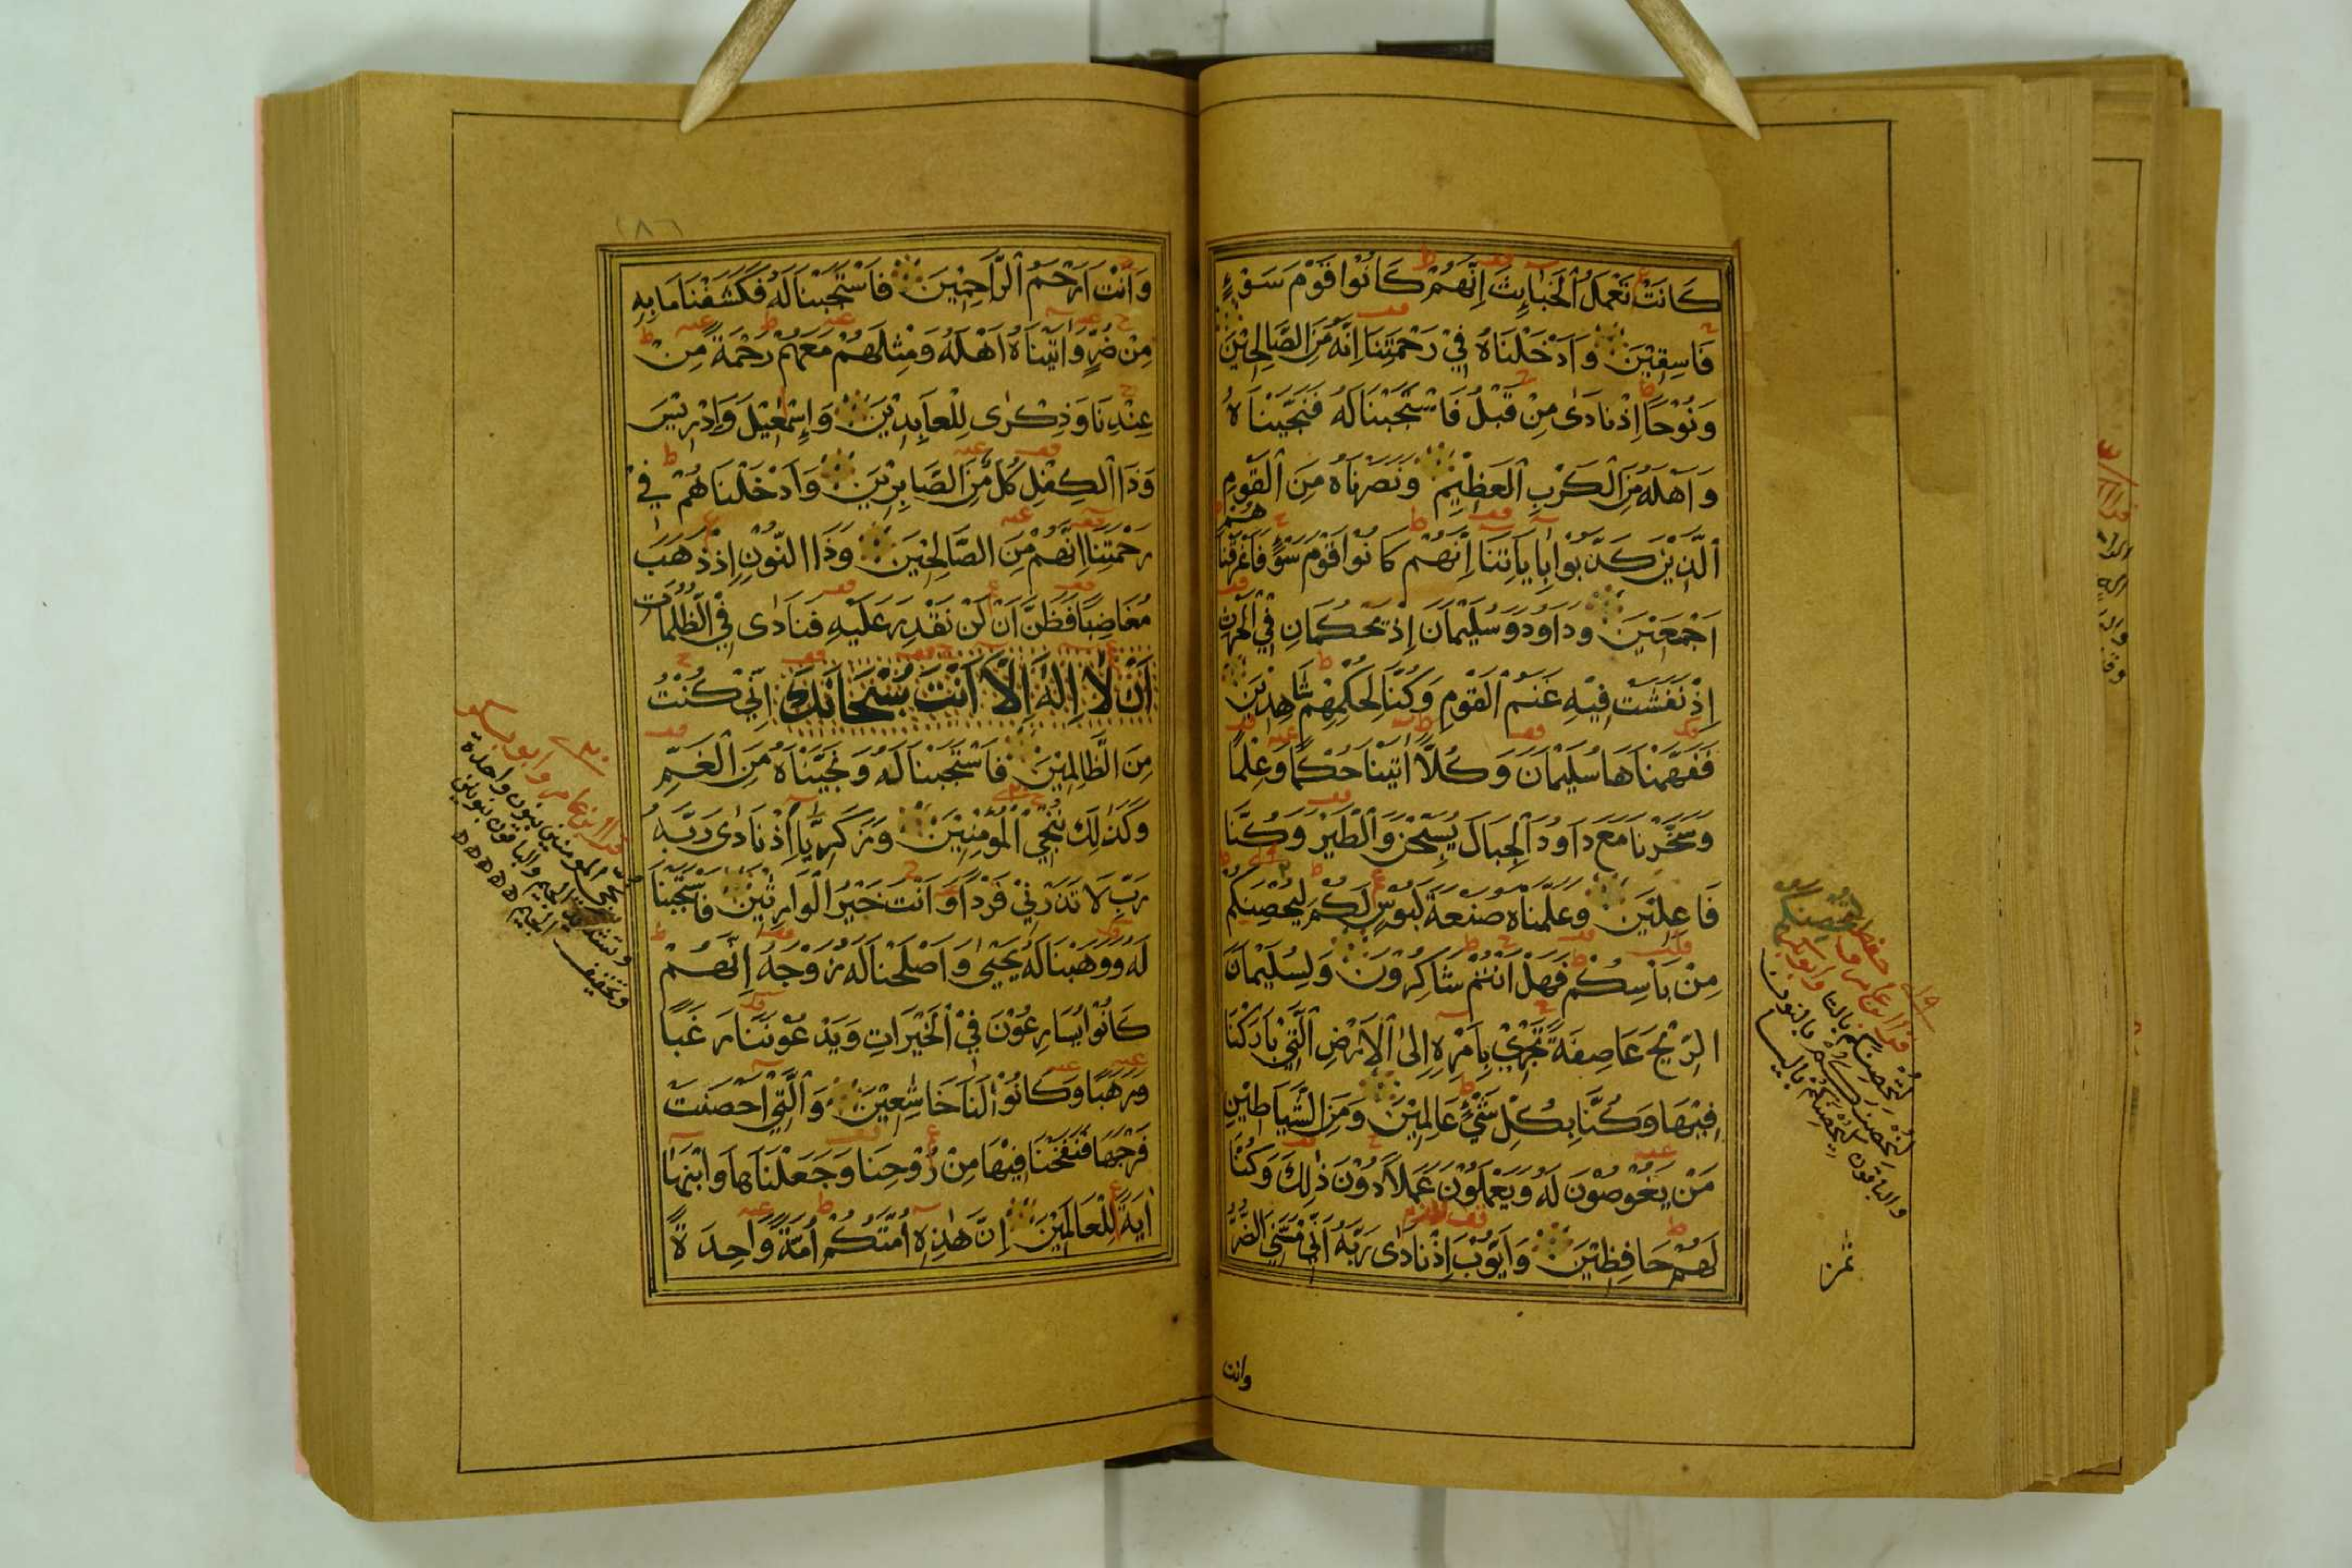 كَانَتْ تَعْمَلُ الْخَبَايِثَ اِنَّهُمْ كَانُوا قَوْمَ سَوْءٍ
فَاسِقِيْنَ وَاَدْخَلْنَاهُ فِيْ رَحْمَتِنَا اِنَّهُ مِنَ الصَّالِحِيْنَ
وَنُوْحًا اِذْ نَادٰى مِنْ قَبْلُ فَاسْتَجَبْنَا لَهُ فَنَجَّيْنَاهُ
وَاَهْلَهُ مِنَ الْكَرْبِ الْعَظِيْمِ وَنَصَرْنَاهُ مِنَ الْقَوْمِ
الَّذِيْنَ كَذَّبُوْا بِاٰيَاتِنَا اِنَّهُمْ كَانُوْا قَوْمَ سَوْءٍ فَاَغْرَقْنَاهُمْ
اَجْمَعِيْنَ وَدَاوُدَ وَسُلَيْمَانَ اِذْ يَحْكُمَانِ فِي الْحَرْثِ
اِذْ نَفَشَتْ فِيْهِ غَنَمُ الْقَوْمِ وَكُنَّا لِحُكْمِهِمْ شَاهِدِيْنَ
فَفَهَّمْنَاهَا سُلَيْمَانَ وَكُلًّا اٰتَيْنَا حُكْمًا وَعِلْمًا
وَسَخَّرْنَا مَعَ دَاوُدَ الْجِبَالَ يُسَبِّحْنَ وَالطَّيْرَ وَكُنَّا
فَاعِلِيْنَ وَعَلَّمْنَاهُ صَنْعَةَ لَبُوْسٍ لَكُمْ لِيُحْصِنَكُمْ
مِنْ بَاْسِكُمْ فَهَلْ اَنْتُمْ شَاكِرُوْنَ وَلِسُلَيْمَانَ
الرِّيْحَ عَاصِفَةً تَجْرِيْ بِاَمْرِهِ اِلَى الْاَرْضِ الَّتِيْ بَارَكْنَا
فِيْهَا وَكُنَّا بِكُلِّ شَيْءٍ عَالِمِيْنَ وَمِنَ الشَّيَاطِيْنِ
مَنْ يَغُوْصُوْنَ لَهُ وَيَعْمَلُوْنَ عَمَلًا دُوْنَ ذٰلِكَ وَكُنَّا
لَهُمْ حَافِظِيْنَ وَاَيُّوْبَ اِذْ نَادٰى رَبَّهُ اَنِّيْ مَسَّنِيَ الضُّرُّ
وانت
لتحصنكم بالتا وابوبكر
لنحصنكم بالنون
والباقون ليحصنكم بالياء
١٨٦
وَاَنْتَ اَرْحَمُ الرَّاحِمِيْنَ فَاسْتَجَبْنَا لَهُ فَكَشَفْنَا مَا بِهِ
مِنْ ضُرٍّ وَاٰتَيْنَاهُ اَهْلَهُ وَمِثْلَهُمْ مَعَهُمْ رَحْمَةً مِنْ
عِنْدِنَا وَذِكْرٰى لِلْعَابِدِيْنَ وَاِسْمٰعِيْلَ وَاِدْرِيْسَ
وَذَا الْكِفْلِ كُلٌّ مِنَ الصَّابِرِيْنَ وَاَدْخَلْنَاهُمْ فِيْ
رَحْمَتِنَا اِنَّهُمْ مِنَ الصَّالِحِيْنَ وَذَا النُّوْنِ اِذْ ذَهَبَ
مُغَاضِبًا فَظَنَّ اَنْ لَنْ نَقْدِرَ عَلَيْهِ فَنَادٰى فِي الظُّلُمَاتِ
اَنْ لَا اِلٰهَ اِلَّا اَنْتَ سُبْحَانَكَ اِنِّيْ كُنْتُ
مِنَ الظَّالِمِيْنَ فَاسْتَجَبْنَا لَهُ وَنَجَّيْنَاهُ مِنَ الْغَمِّ
وَكَذٰلِكَ نُنْجِي الْمُؤْمِنِيْنَ وَزَكَرِيَّا اِذْ نَادٰى رَبَّهُ
رَبِّ لَا تَذَرْنِيْ فَرْدًا وَاَنْتَ خَيْرُ الْوَارِثِيْنَ فَاسْتَجَبْنَا
لَهُ وَوَهَبْنَا لَهُ يَحْيٰى وَاَصْلَحْنَا لَهُ زَوْجَهُ اِنَّهُمْ
كَانُوْا يُسَارِعُوْنَ فِي الْخَيْرَاتِ وَيَدْعُوْنَنَا رَغَبًا
وَرَهَبًا وَكَانُوْا لَنَا خَاشِعِيْنَ وَالَّتِيْ اَحْصَنَتْ
فَرْجَهَا فَنَفَخْنَا فِيْهَا مِنْ رُوْحِنَا وَجَعَلْنَاهَا وَابْنَهَا
اٰيَةً لِلْعَالَمِيْنَ اِنَّ هٰذِهِ اُمَّتُكُمْ اُمَّةً وَاحِدَةً
قرا ابن عامر وابوبكر
نجي المومنين بنون واحدة
وتشديد الجيم والباقون بنونين
وتخفيف الجيم